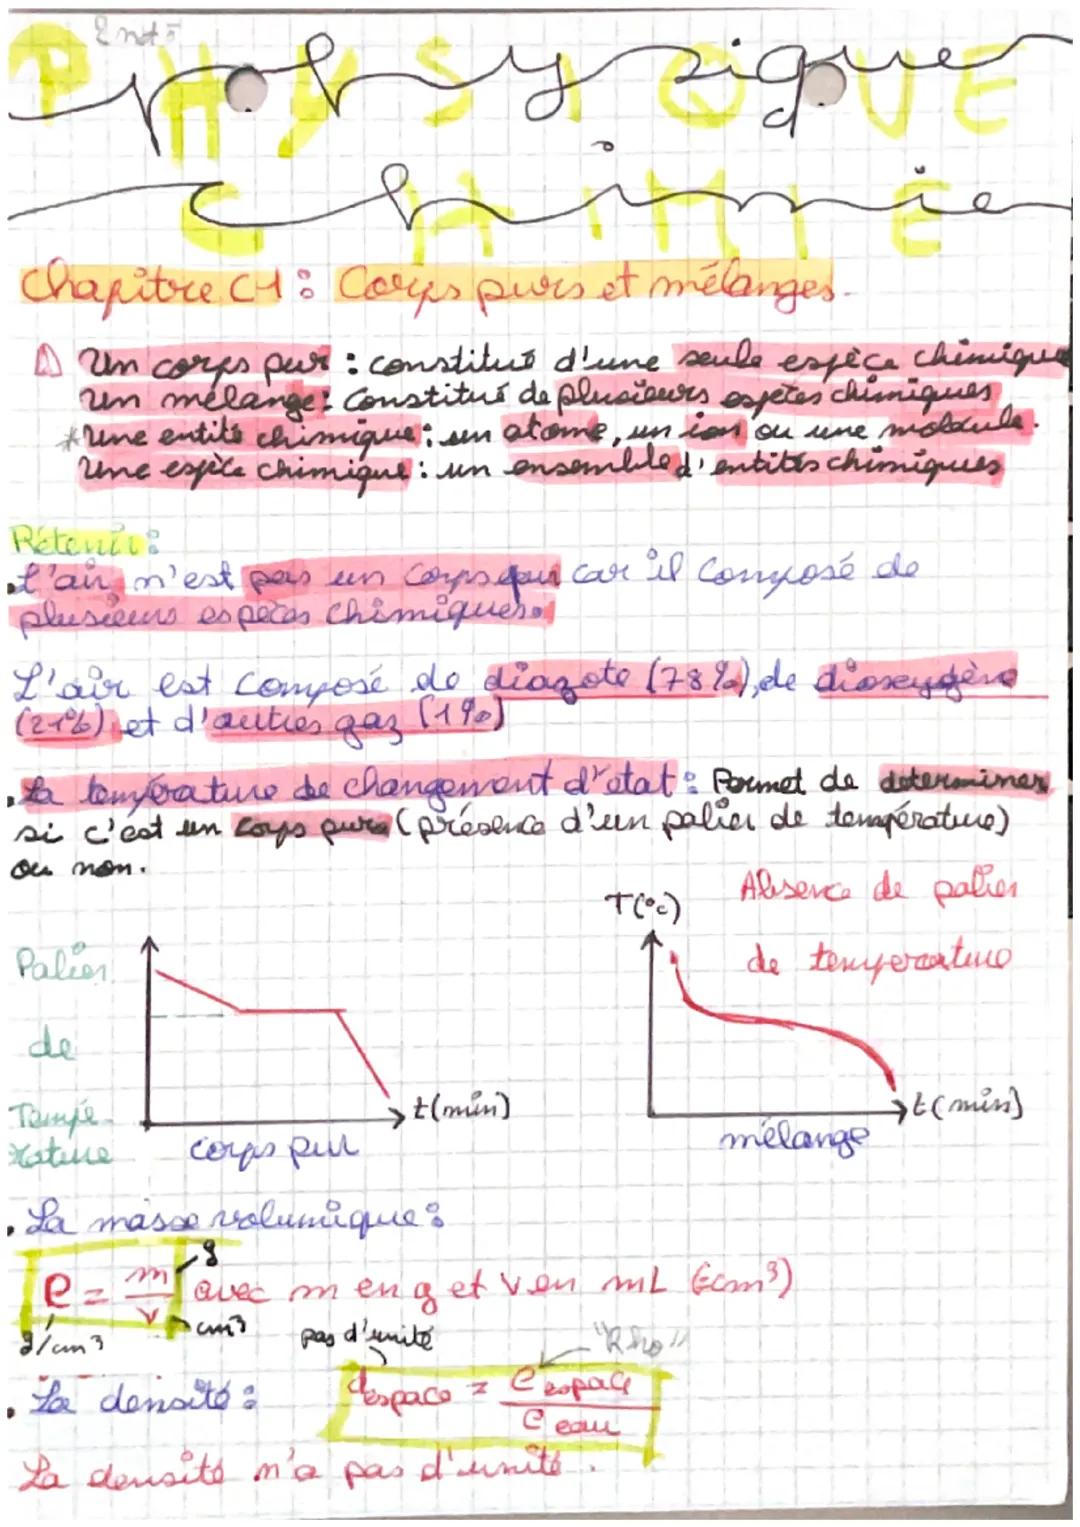 2nd 5
PHYSIQUE
physique
CHIMIE
chimie
Chapitre C1 : Corps purs et mélanges.
Un corps pur : constitué d'une seule espèce chimique
Un mélange : constitué de plusieurs espèces chimiques
* Une entité chimique : un atome, un ion ou une molécule.
Une espèce chimique : un ensemble d'entités chimiques
Rétenir :
L'air n'est pas un corps pur car il composé de
plusieurs espèces chimiques.
L'air est composé de diazote (78%), de dioxygène
(21%) et d'autres gaz (1%)
La température de changement d'état : Permet de determiner
si c'est un corps purs (présence d'un palier de température)
ou non.
Absence de palier
de temperature
T(°c)
Palier
de
Tempé-
rature
t(min)
corps pur
t(min)
mélange
La masse volumique :
ρ = m/v avec m en g et V en mL (cm³)
g
cm³
g/cm³
pas d'unité
"Rho"
La densité :
despace = ρ espace / ρ eau
La densité n'a pas d'unité.